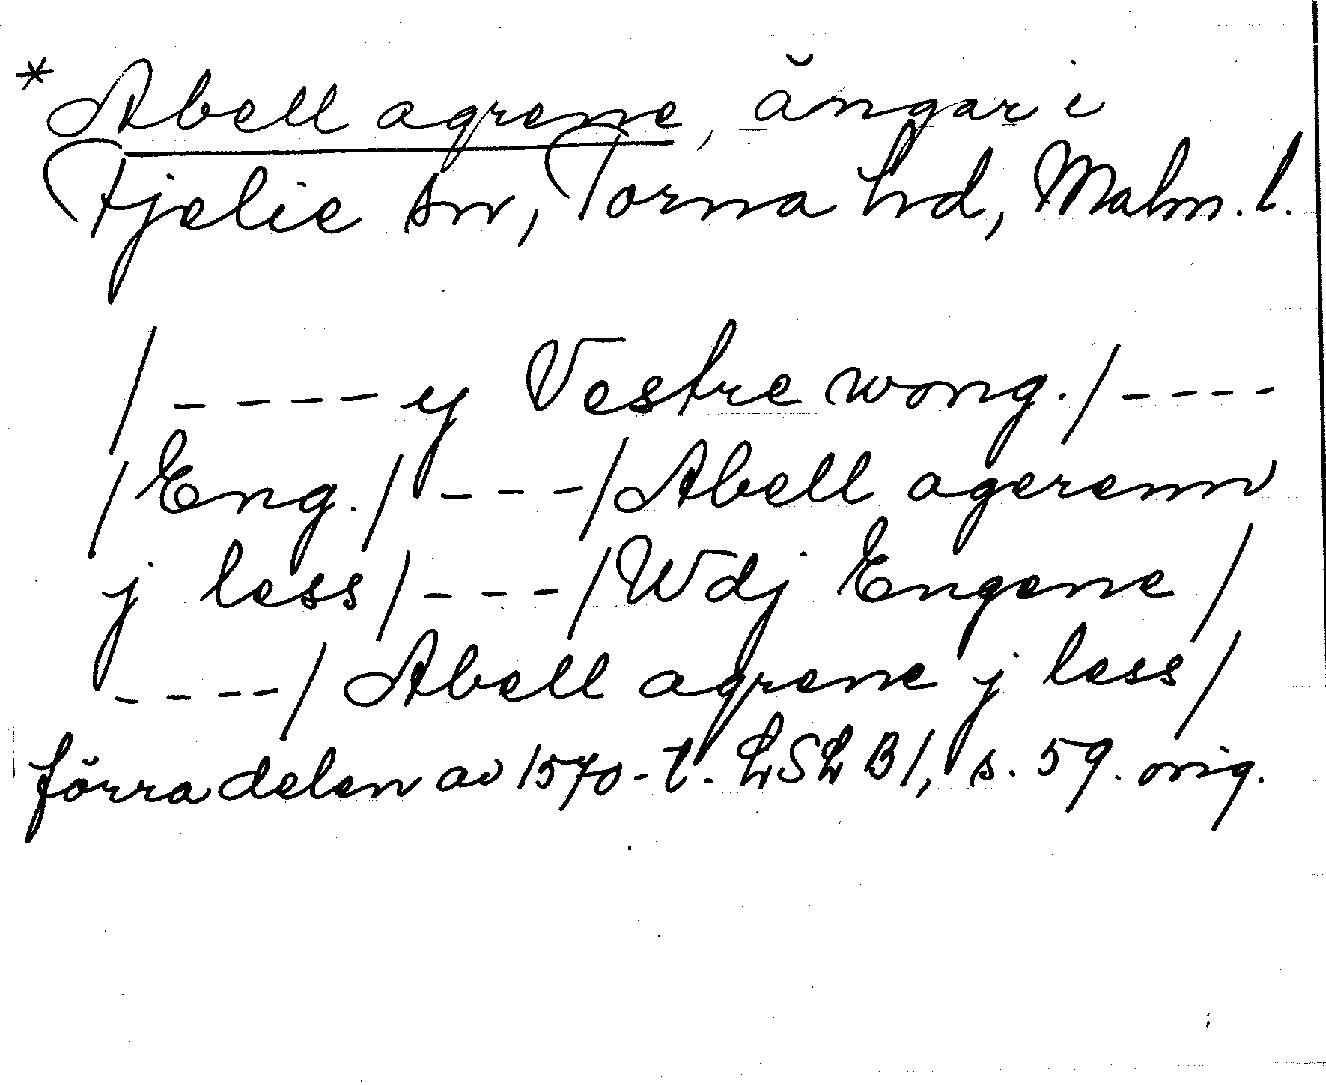 *Abell agrene, ängar i
Fjelie sn, Torna hd, Malm. l.
/ - - - - ej Vestre wong. / - - - -
/ Eng. / - - - / Abell agerenn
j less / - - - / Wdj Engene /
- - - - / Abell agrene j less /
förra delen av 1570-t. LSL B1, s. 59. orig.